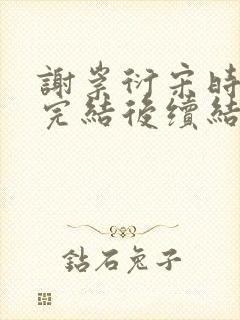 謝崇衍宋時
完結後續結
鈷石兔子